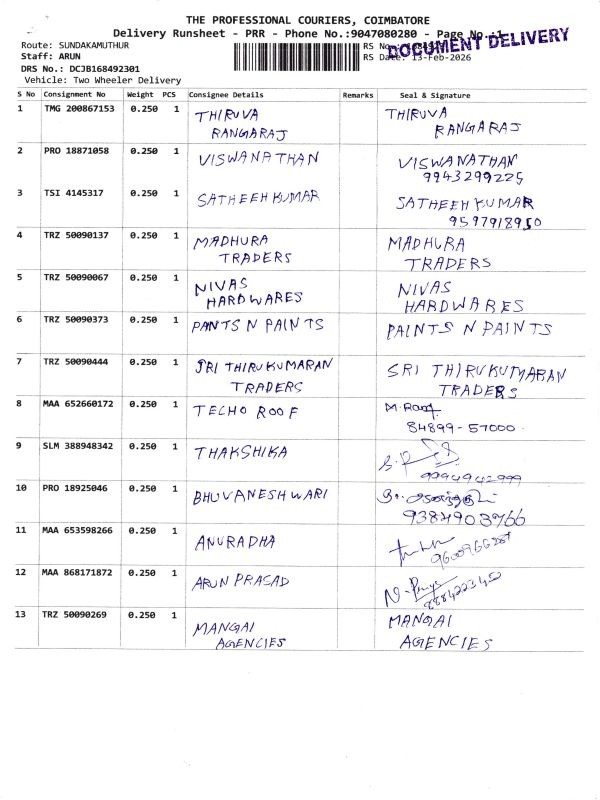 THE PROFESSIONAL COURIERS, COIMBATORE
Delivery Runsheet - PRR - Phone No.:9047080280 - Page No.:1
DOCUMENT DELIVERY
Route: SUNDAKAMUTHUR
RS No
Staff: ARUN
RS Date: 13-Feb-2026
DRS No.: DCJB168492301
Vehicle: Two Wheeler Delivery
S No Consignment No Weight PCS Consignee Details Remarks Seal & Signature
1 TMG 200867153 0.250 1 THIRUVA THIRUVA
RANGARAJ RANGARAJ
2 PRO 18871058 0.250 1 VISWANATHAN VISWANATHAN
9943299225
3 TSI 4145317 0.250 1 SATHEEHKUMAR SATHEEHKUMAR
9597918950
4 TRZ 50090137 0.250 1 MADHURA MADHURA
TRADERS TRADERS
5 TRZ 50090067 0.250 1 NIVAS NIVAS
HARDWARES HARDWARES
6 TRZ 50090373 0.250 1 PANTS N PAINTS PAINTS N PAINTS
7 TRZ 50090444 0.250 1 SRI THIRUKUMARAN SRI THIRUKUMARAN
TRADERS TRADERS
8 MAA 652660172 0.250 1 TECHO ROOF M.
84899-57000
9 SLM 388948342 0.250 1 THAKSHIKA
9994942999
10 PRO 18925046 0.250 1 BHUVANESHWARI
9384903766
11 MAA 653598266 0.250 1 ANURADHA
12 MAA 868171872 0.250 1 ARUN PRASAD N. Priya
13 TRZ 50090269 0.250 1 MANGAI MANGAI
AGENCIES AGENCIES